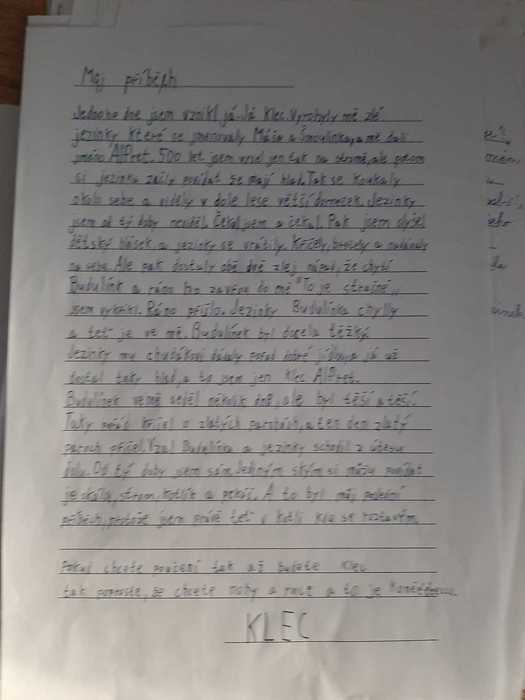 Můj příběh
Jednoho dne jsem vznikl já-Já Klec. Vyrobyly mě zlé
jezinky které se jmenovaly Máša a Šmoulinka, a mě dali
jméno Alfret. 500 let jsem vysel jen tak na stromě, ale potom
si jezinka začly povídat že mají hlad. Tak se koukaly
okolo sebe a viděly v dole lese větší domeček. Jezinky
jsem od tý doby neviděl. Čekal jsem a čekal. Pak jsem slyšel
dětský hlásek a jezinky se vrátily. Křičely, a nadávaly
na sebe. Ale pak dostaly obě dvě zlej nápad, že chytí
Budulínk a ráno ho zavřou do mě "To je strašné,,
jsem vykřikl. Ráno přišlo. Jezinky Budulínka chytly
a teť je ve mě. Budulínek byl docela těžký
Jezinky mu chudákovi dávaly pořád dobré jídlo, a já už
dostal taky hlad, a to jsem jen klec Alfret.
Budulínek ve mě seděl několik dně, ale byl těší a těší.
Taky pořád křičel o zlatých parohách, a ten den zlatý
paroh přišel. Vzal Budulínka a jezinky schodil z útesu
dolu. Od tý doby jsem sám. Jediným s kým si můžu povídat
je skála, strom, kotlík a pekáč. A to byl můj poslední
příběh, protože jsem právě teť v kotli kde se roztavím.
Pokud chcete poučení tak až budete klec
tak poproste, že chcete nohy a ruce a to je
KLEC